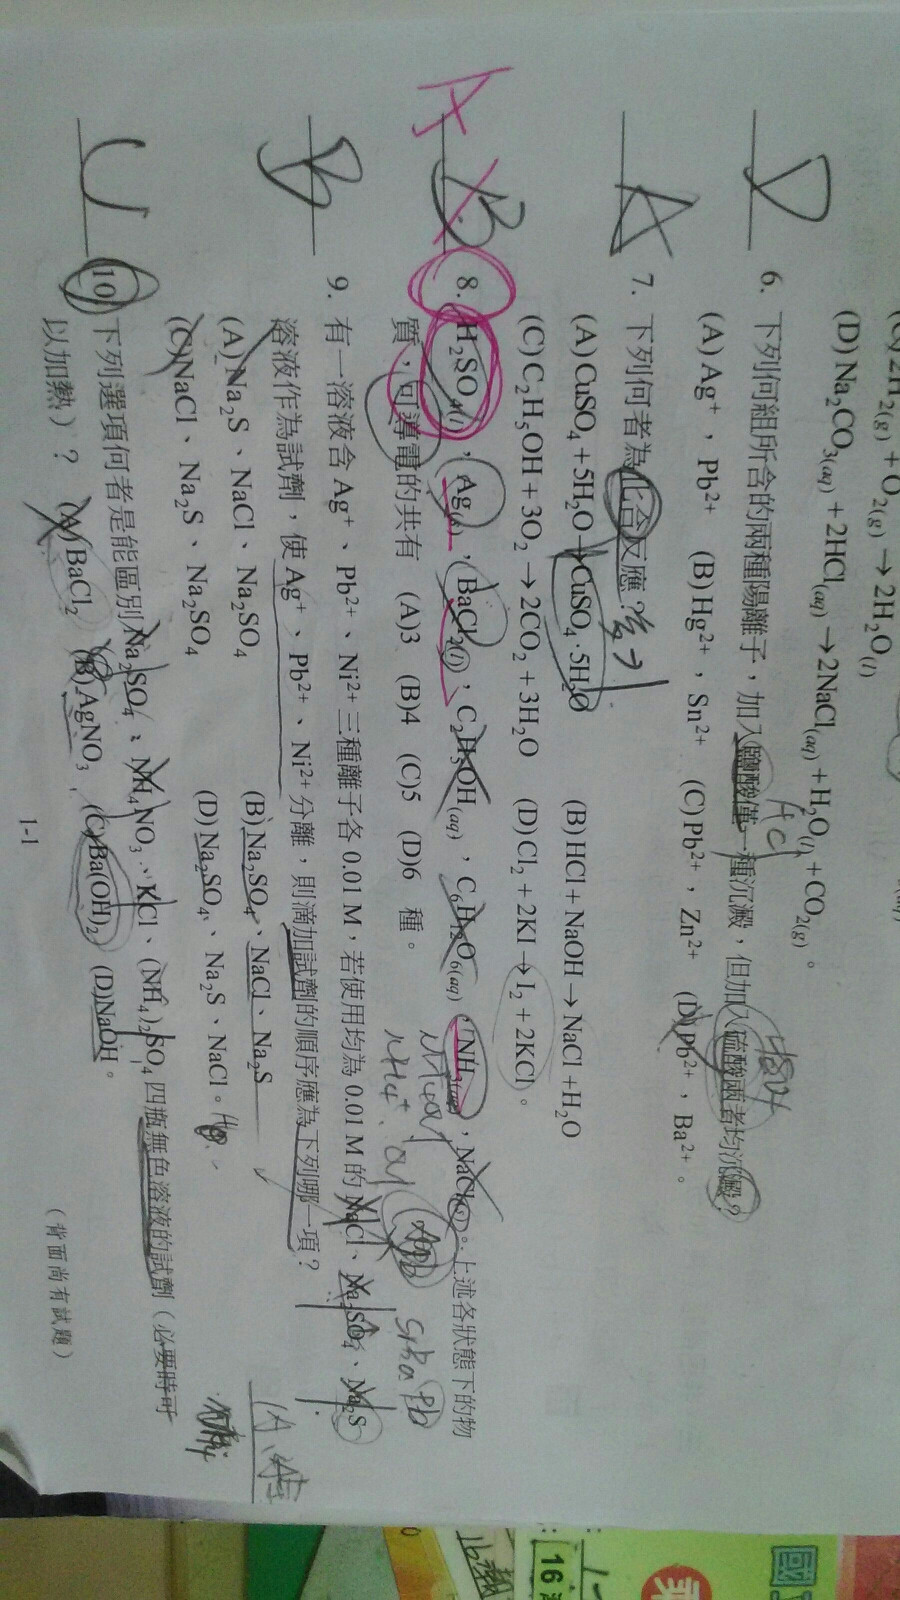 (D) Na₂CO₃(aq) + 2HCl(aq) → 2NaCl(aq) + H₂O(l) + CO₂(g)。
D 6. 下列何組所含的兩種陽離子，加入鹽酸僅一種沉澱，但加入硫酸兩者均沉澱？
(A) Ag⁺，Pb²⁺ (B) Hg²⁺，Sn²⁺ (C) Pb²⁺，Zn²⁺ (D) Pb²⁺，Ba²⁺。
A 7. 下列何者為化合反應？
(A) CuSO₄ + 5H₂O → CuSO₄·5H₂O (B) HCl + NaOH → NaCl + H₂O
(C) C₂H₅OH + 3O₂ → 2CO₂ + 3H₂O (D) Cl₂ + 2KI → I₂ + 2KCl。
A B 8. H₂SO₄(l)，Ag(s)，BaCl₂(l)，C₂H₅OH(aq)，C₆H₁₂O₆(aq)，NH₃(aq)，NaCl(s)。上述各狀態下的物
質，可導電的共有 (A)3 (B)4 (C)5 (D)6 種。
B 9. 有一溶液含 Ag⁺、Pb²⁺、Ni²⁺ 三種離子各 0.01 M，若使用均為 0.01 M 的 NaCl、Na₂SO₄、Na₂S
溶液作為試劑，使 Ag⁺、Pb²⁺、Ni²⁺ 分離，則滴加試劑的順序應為下列哪一項？
(A) Na₂S、NaCl、Na₂SO₄ (B) Na₂SO₄、NaCl、Na₂S
(C) NaCl、Na₂S、Na₂SO₄ (D) Na₂SO₄、Na₂S、NaCl。
C 10. 下列選項何者是能區別 Na₂SO₄、NH₄NO₃、KCl、(NH₄)₂SO₄ 四瓶無色溶液的試劑（必要時可
以加熱）？ (A) BaCl₂ (B) AgNO₃ (C) Ba(OH)₂ (D) NaOH。
1-1
（背面尚有試題）
國
16